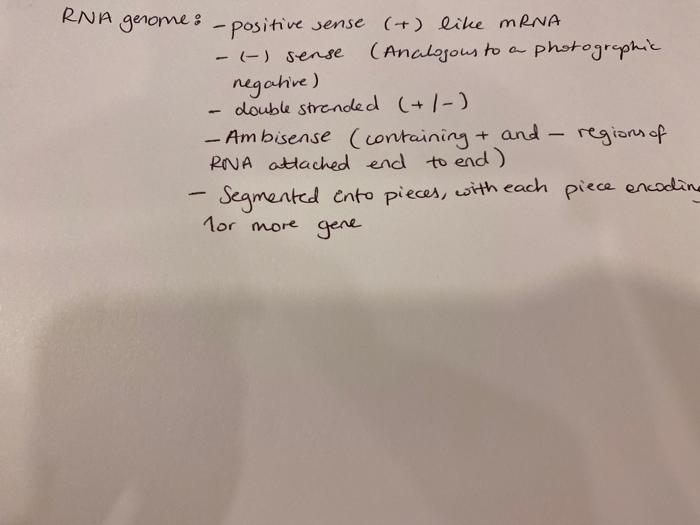 RNA genome: - positive sense (+) like mRNA
- (-) sense (Analogous to a photographic
negative)
- double stranded (+/-)
- Ambisense (containing + and - regions of
RNA attached end to end)
- Segmented into pieces, with each piece encoding
1 or more gene